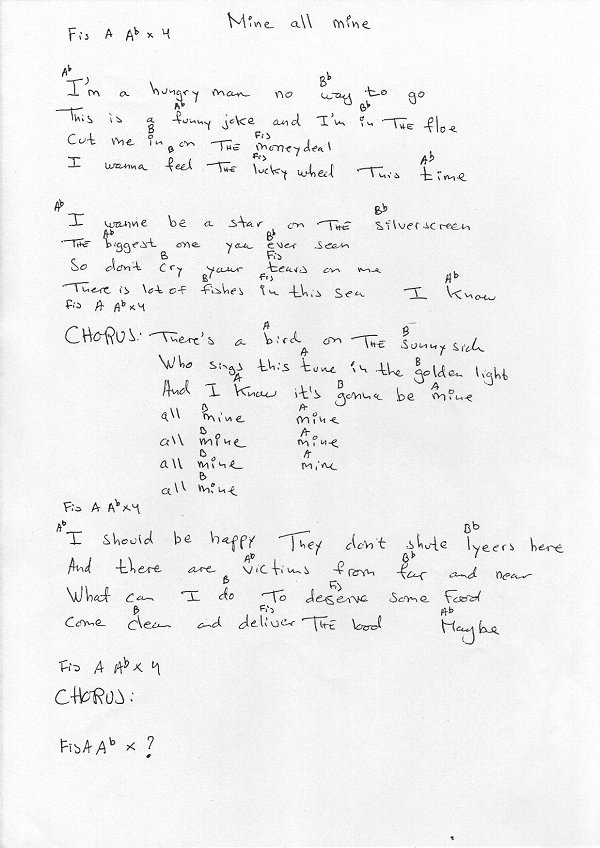 Mine all mine
Fis A Ab x 4
Ab Bb
I'm a hungry man no way to go
Ab Bb
This is a funny joke and I'm in THE floe
B Fis
Cut me in on THE moneydeal
B Fis Ab
I wanna feel THE lucky wheel This time
Ab Bb
I wanne be a star on THE silverscreen
Ab Bb
THE biggest one you ever seen
B Fis
So don't cry your tears on me
B Fis Ab
There is lot of fishes in this sea I know
Fis A Ab x4
A B
CHORUS: There's a bird on THE sunny side
A B
Who sings this tune in the golden light
A B A
And I know it's gonna be mine
B A
all mine mine
B A
all mine mine
B A
all mine mine
B
all mine
Fis A Ab x4
Ab Bb
I should be happy They don't shute lyeers here
Ab Bb
And there are victims from far and near
B Fis
What can I do To deserve some food
B Fis Ab
Come clean and deliver THE bood Maybe
Fis A Ab x 4
CHORUS:
Fis A Ab x ?